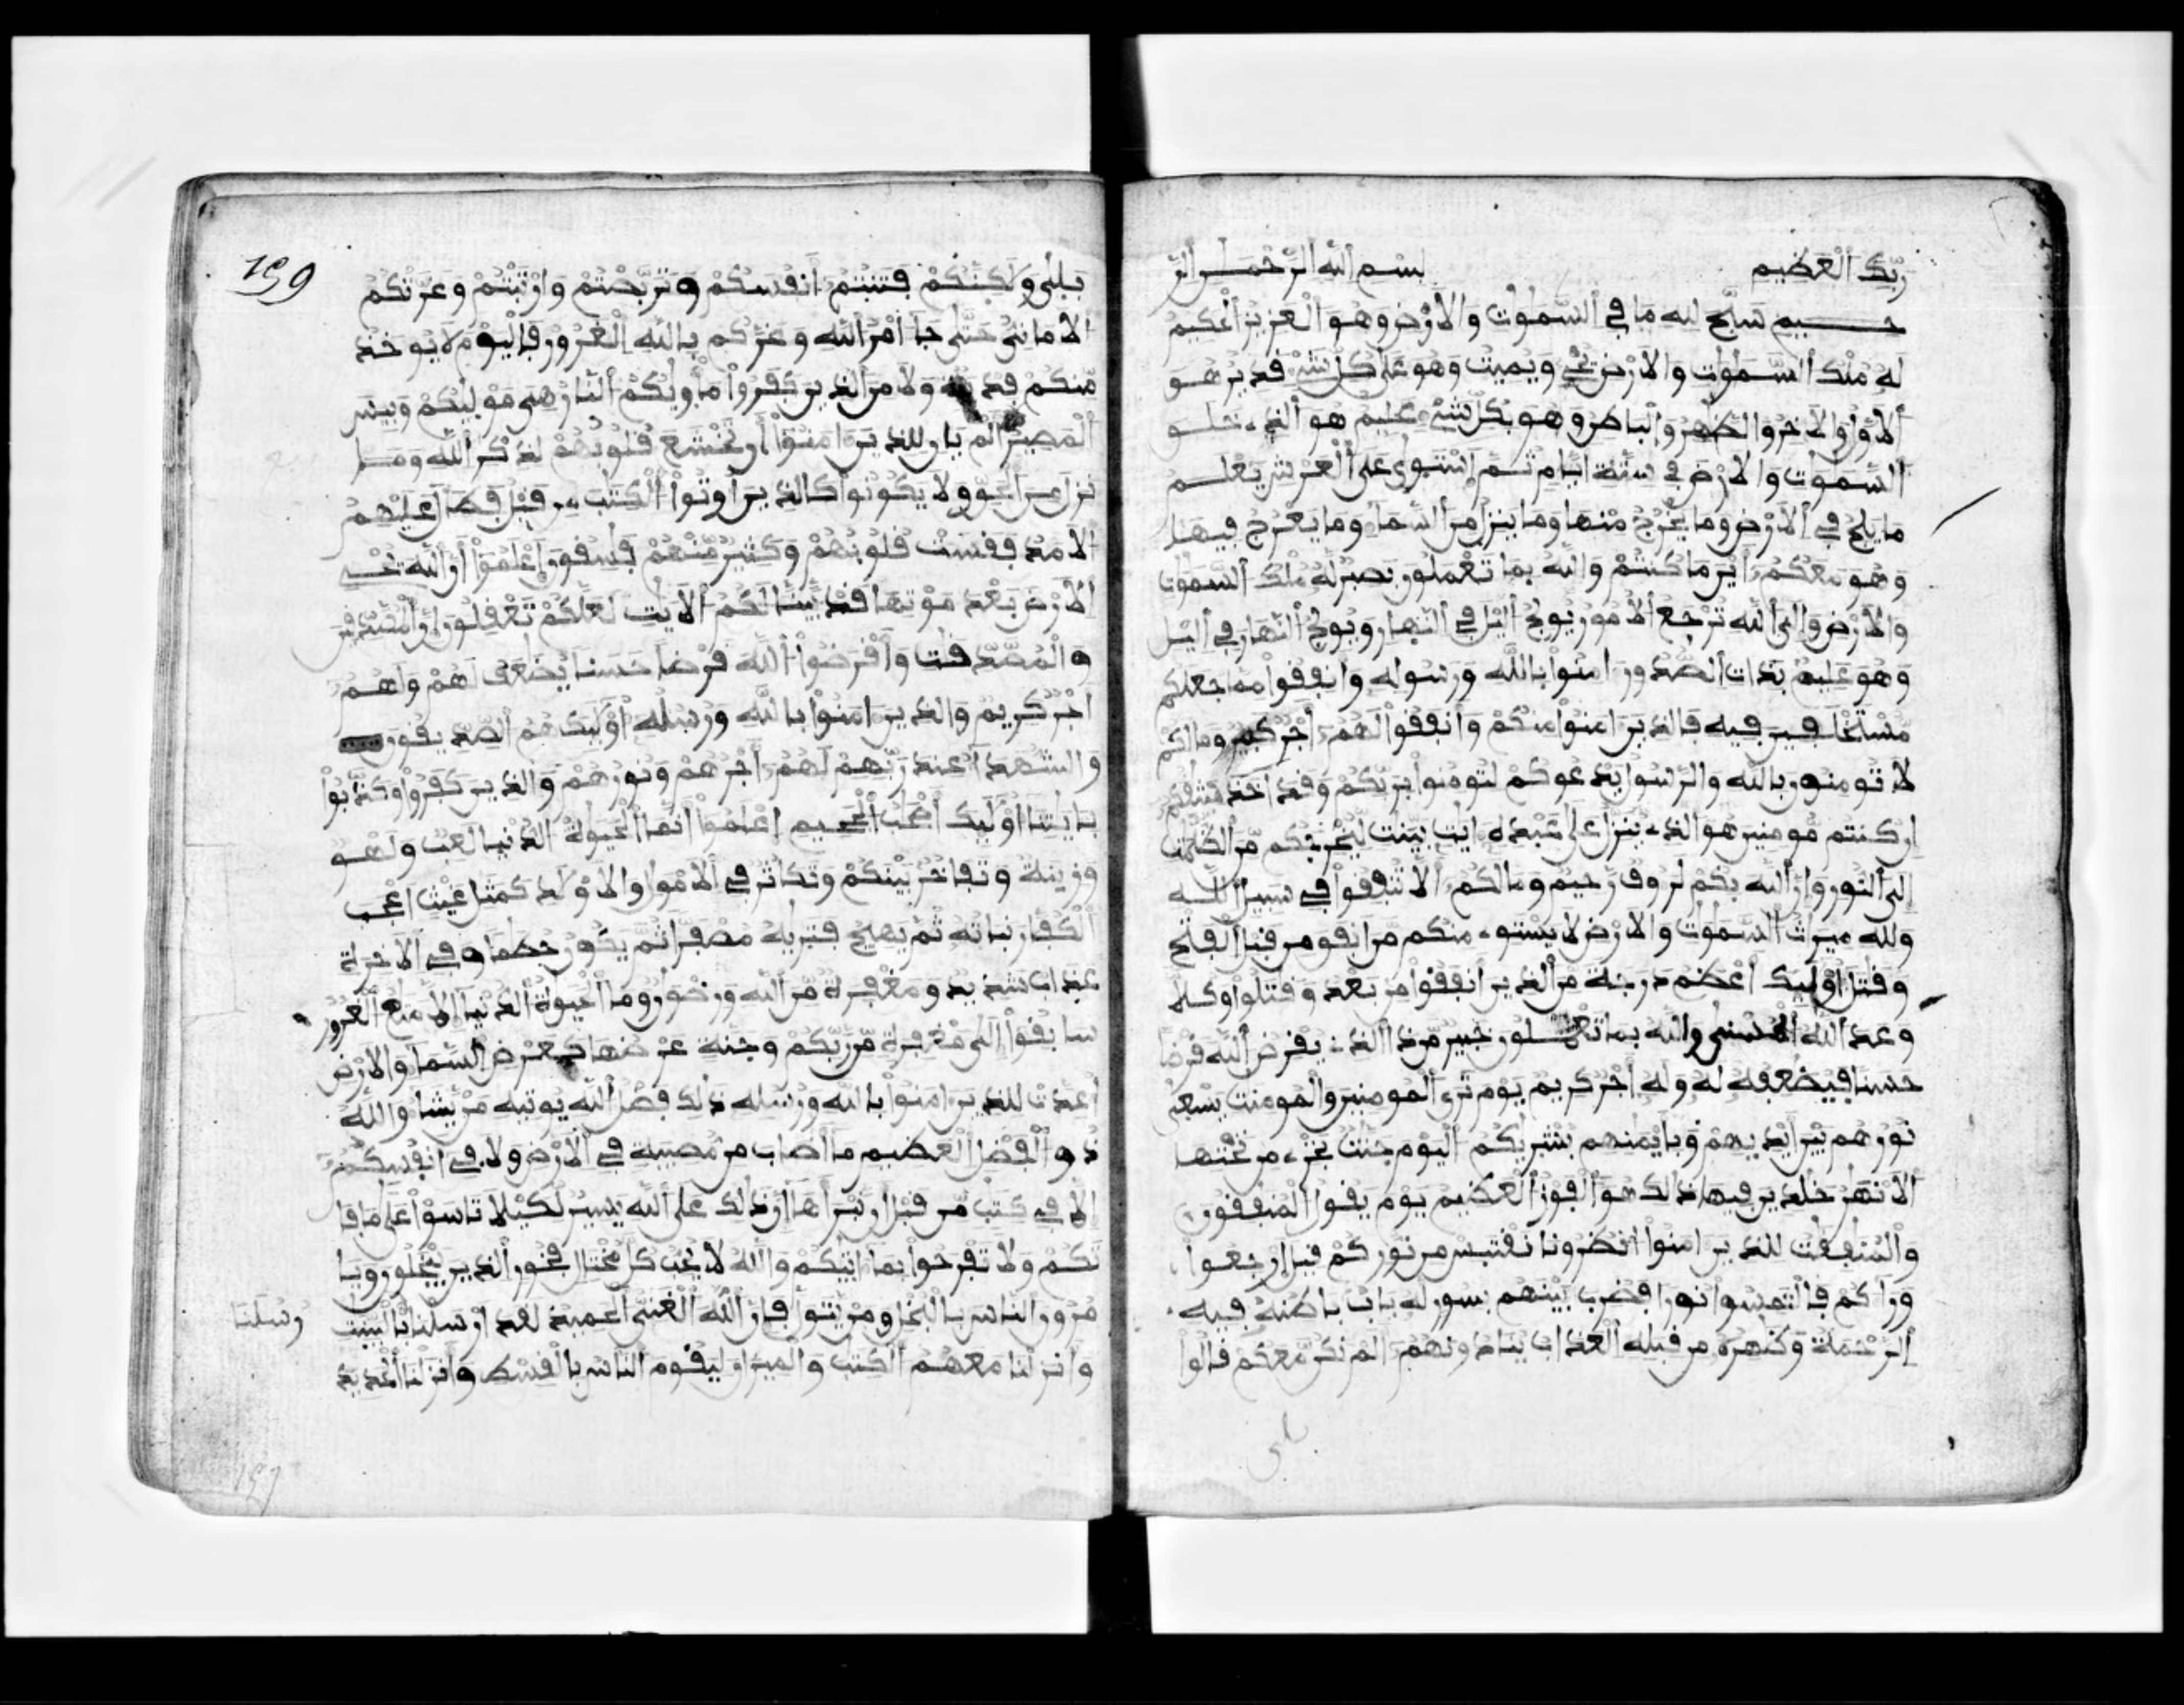 ربك العظيم بسم الله الرحمن الر
حيم سبح لله ما في السموت والارض وهو العزيز الحكيم
له ملك السموت والارض يحي ويميت وهو على كل شيء قدير هو
الاول والاخر والظهر والباطن وهو بكل شيء عليم هو الذي خلق
السموت والارض في ستة ايام ثم استوى على العرش يعلم
ما يلج في الارض وما يخرج منها وما ينزل من السما وما يعرج فيها
وهو معكم اين ما كنتم والله بما تعملون بصير له ملك السموت
والارض والى الله ترجع الامور يولج اليل في النهار ويولج النهار في اليل
وهو عليم بذات الصدور امنوا بالله ورسوله وانفقوا مما جعلكم
مستخلفين فيه فالذين امنوا منكم وانفقوا لهم اجر كبير وما لكم
لا تومنون بالله والرسول يدعوكم لتومنوا بربكم وقد اخذ ميثقكم
ان كنتم مومنين هو الذي ينزل على عبده ايت بينت ليخرجكم من الظلمت
الى النور وان الله بكم لروف رحيم وما لكم الا تنفقوا في سبيل الله
ولله ميراث السموت والارض لا يستوي منكم من انفق من قبل الفتح
وقتل اوليك اعظم درجة من الذين انفقوا من بعد وقتلوا وكلا
وعد الله الحسنى والله بما تعملون خبير من ذا الذي يقرض الله قرضا
حسنا فيضعفه له وله اجر كريم يوم ترى المومنين والمومنت يسعى
نورهم بين ايديهم وبايمنهم بشريكم اليوم جنت تجري من تحتها
الانهر خلدين فيها ذلك هو الفوز العظيم يوم يقول المنفقون
والمنفقت للذين امنوا انظرونا نقتبس من نوركم قيل ارجعوا
وراكم فالتمسوا نورا فضرب بينهم بسور له باب باطنه فيه
الرحمة وظهره من قبله العذاب ينادونهم الم نكن معكم قالوا
بلى
159
بلى ولكنكم فتنتم انفسكم وتربصتم وارتبتم وغرتكم
الاماني حتى جا امر الله وغركم بالله الغرور فاليوم لا يوخذ
منكم فدية ولا من الذين كفروا ماويكم النار هي موليكم وبيس
المصير الم يان للذين امنوا ان تخشع قلوبهم لذكر الله وما
نزل من الحق ولا يكونوا كالذين اوتوا الكتب من قبل فطال عليهم
الامد فقست قلوبهم وكثير منهم فسقون اعلموا ان الله يحي
الارض بعد موتها قد بينا لكم الايت لعلكم تعقلون ان المصدقين
والمصدقت واقرضوا الله قرضا حسنا يضعف لهم ولهم
اجر كريم والذين امنوا بالله ورسله اوليك هم الصديقون
والشهدا عند ربهم لهم اجرهم ونورهم والذين كفروا وكذبوا
بايتنا اوليك اصحب الجحيم اعلموا انما الحيوة الدنيا لعب ولهو
وزينة وتفاخر بينكم وتكاثر في الامول والاولد كمثل غيث اعجب
الكفار نباته ثم يهيج فتريه مصفرا ثم يكون حطما وفي الاخرة
عذاب شديد ومغفرة من الله ورضون وما الحيوة الدنيا الا متع الغرور
سابقوا الى مغفرة من ربكم وجنة عرضها كعرض السما والارض
اعدت للذين امنوا بالله ورسله ذلك فضل الله يوتيه من يشا والله
ذو الفضل العظيم ما اصاب من مصيبة في الارض ولا في انفسكم
الا في كتب من قبل ان نبراها ان ذلك على الله يسير لكيلا تاسوا على ما فا
تكم ولا تفرحوا بما اتيكم والله لا يحب كل مختال فخور الذين يبخلون ويا
مرون الناس بالبخل ومن يتول فان الله الغني الحميد لقد ارسلنا بالبينت
رسلنا
وانزلنا معهم الكتب والميزان ليقوم الناس بالقسط وانزلنا الحديد